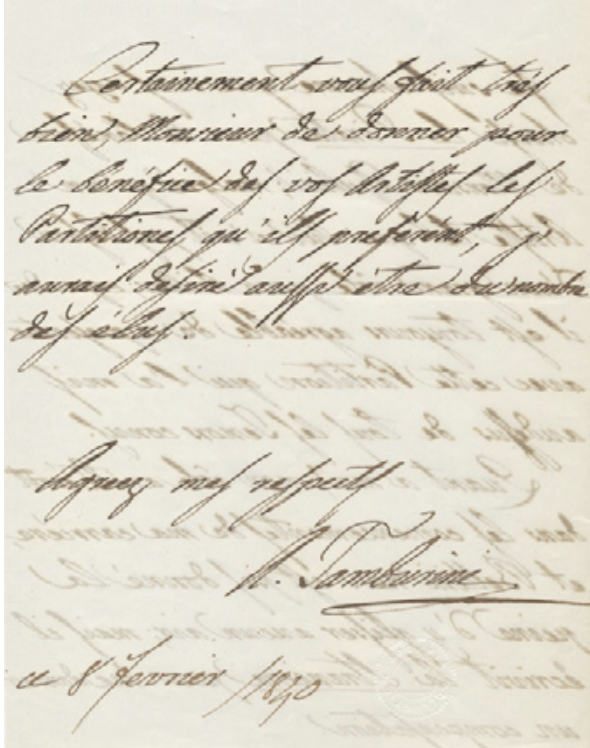 Certainement vous fait très
bien, Monsieur de donner pour
le benéfice des vos Artistes les
Partitiones qu'ils preferent, j'
aurais desiré aussi être du nombre
des élus.
Agreez mes respects
A. Tamburini
ce 8 fevrier 1840